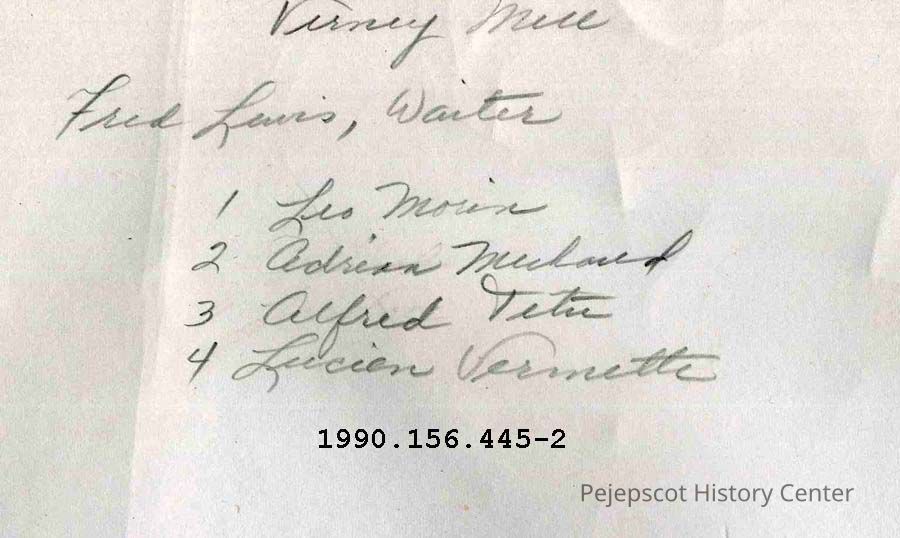 Verney Mill
Fred Lewis, Waiter
1 Leo Morin
2 Adrian Michaud
3 Alfred Tetu
4 Lucien Vermette
1990.156.445-2
Pejepscot History Center